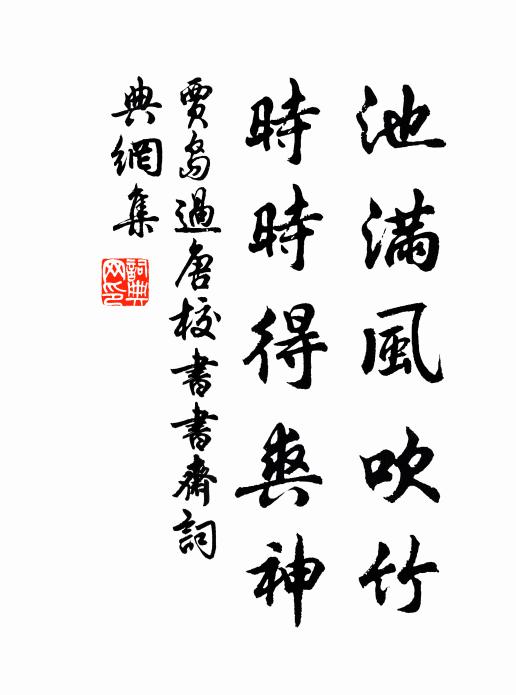 池滿風吹竹
時時得爽神
賈島過唐校書書齋詞
典網集
詞典
网印